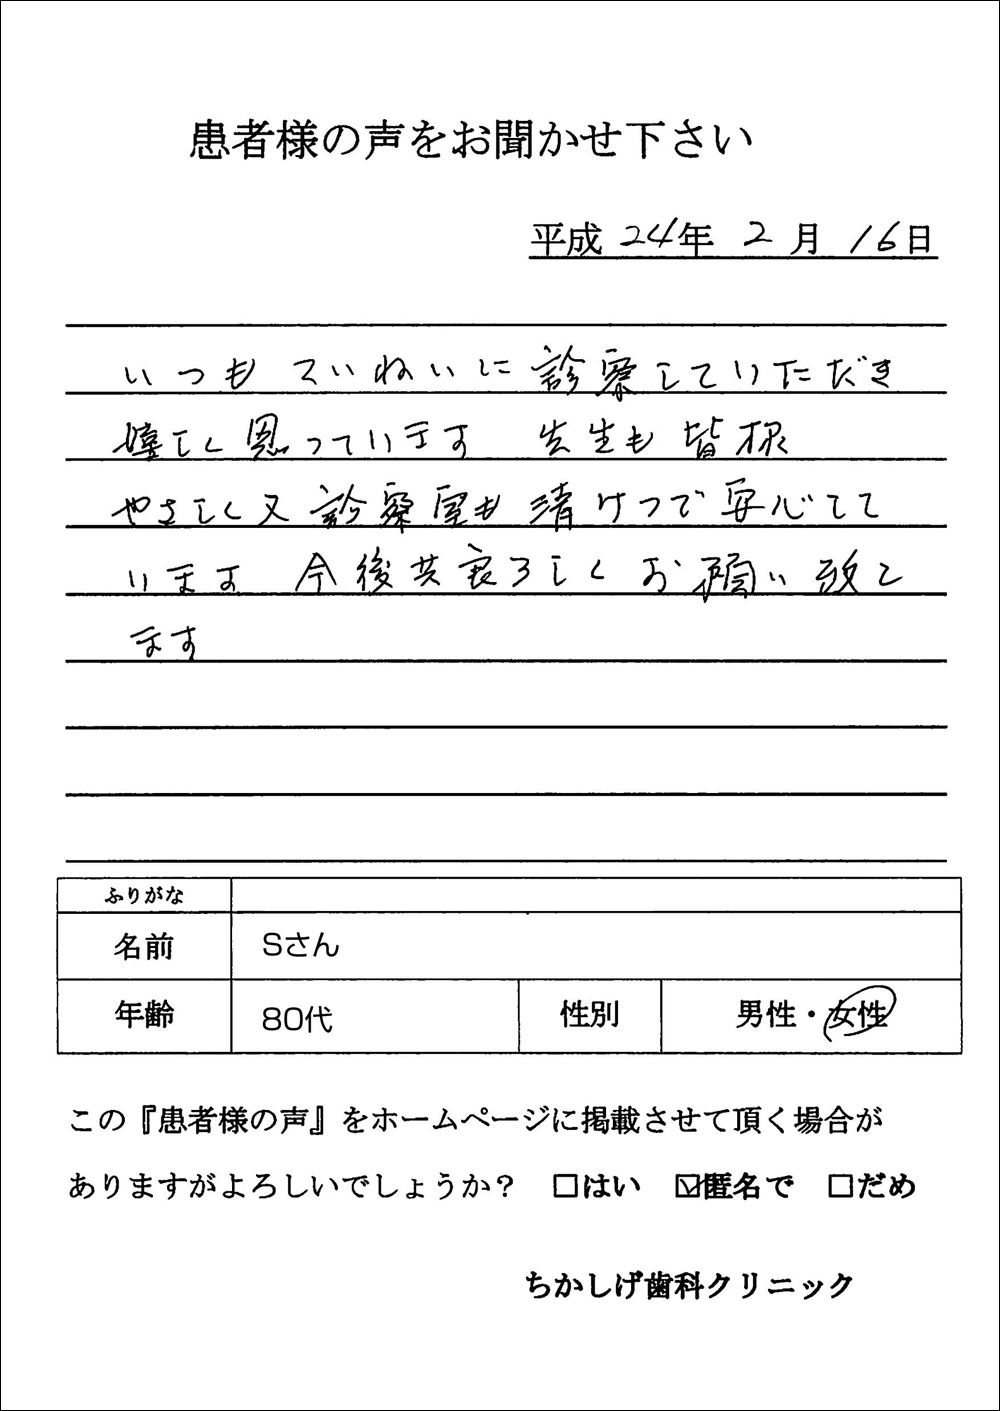 患者様の声をお聞かせ下さい
平成 24年 2月 16日
いつも ていねいに 診察していただき
嬉しく思っています 先生も 皆様
やさしく又 診察室も 清けつで 安心して
います 今後共良ろしく お願い致し
ます
ふりがな
名前 Sさん
年齢 80代 性別 男性・女性
この『患者様の声』をホームページに掲載させて頂く場合が
ありますがよろしいでしょうか? □はい ☑匿名で □だめ
ちかしげ歯科クリニック